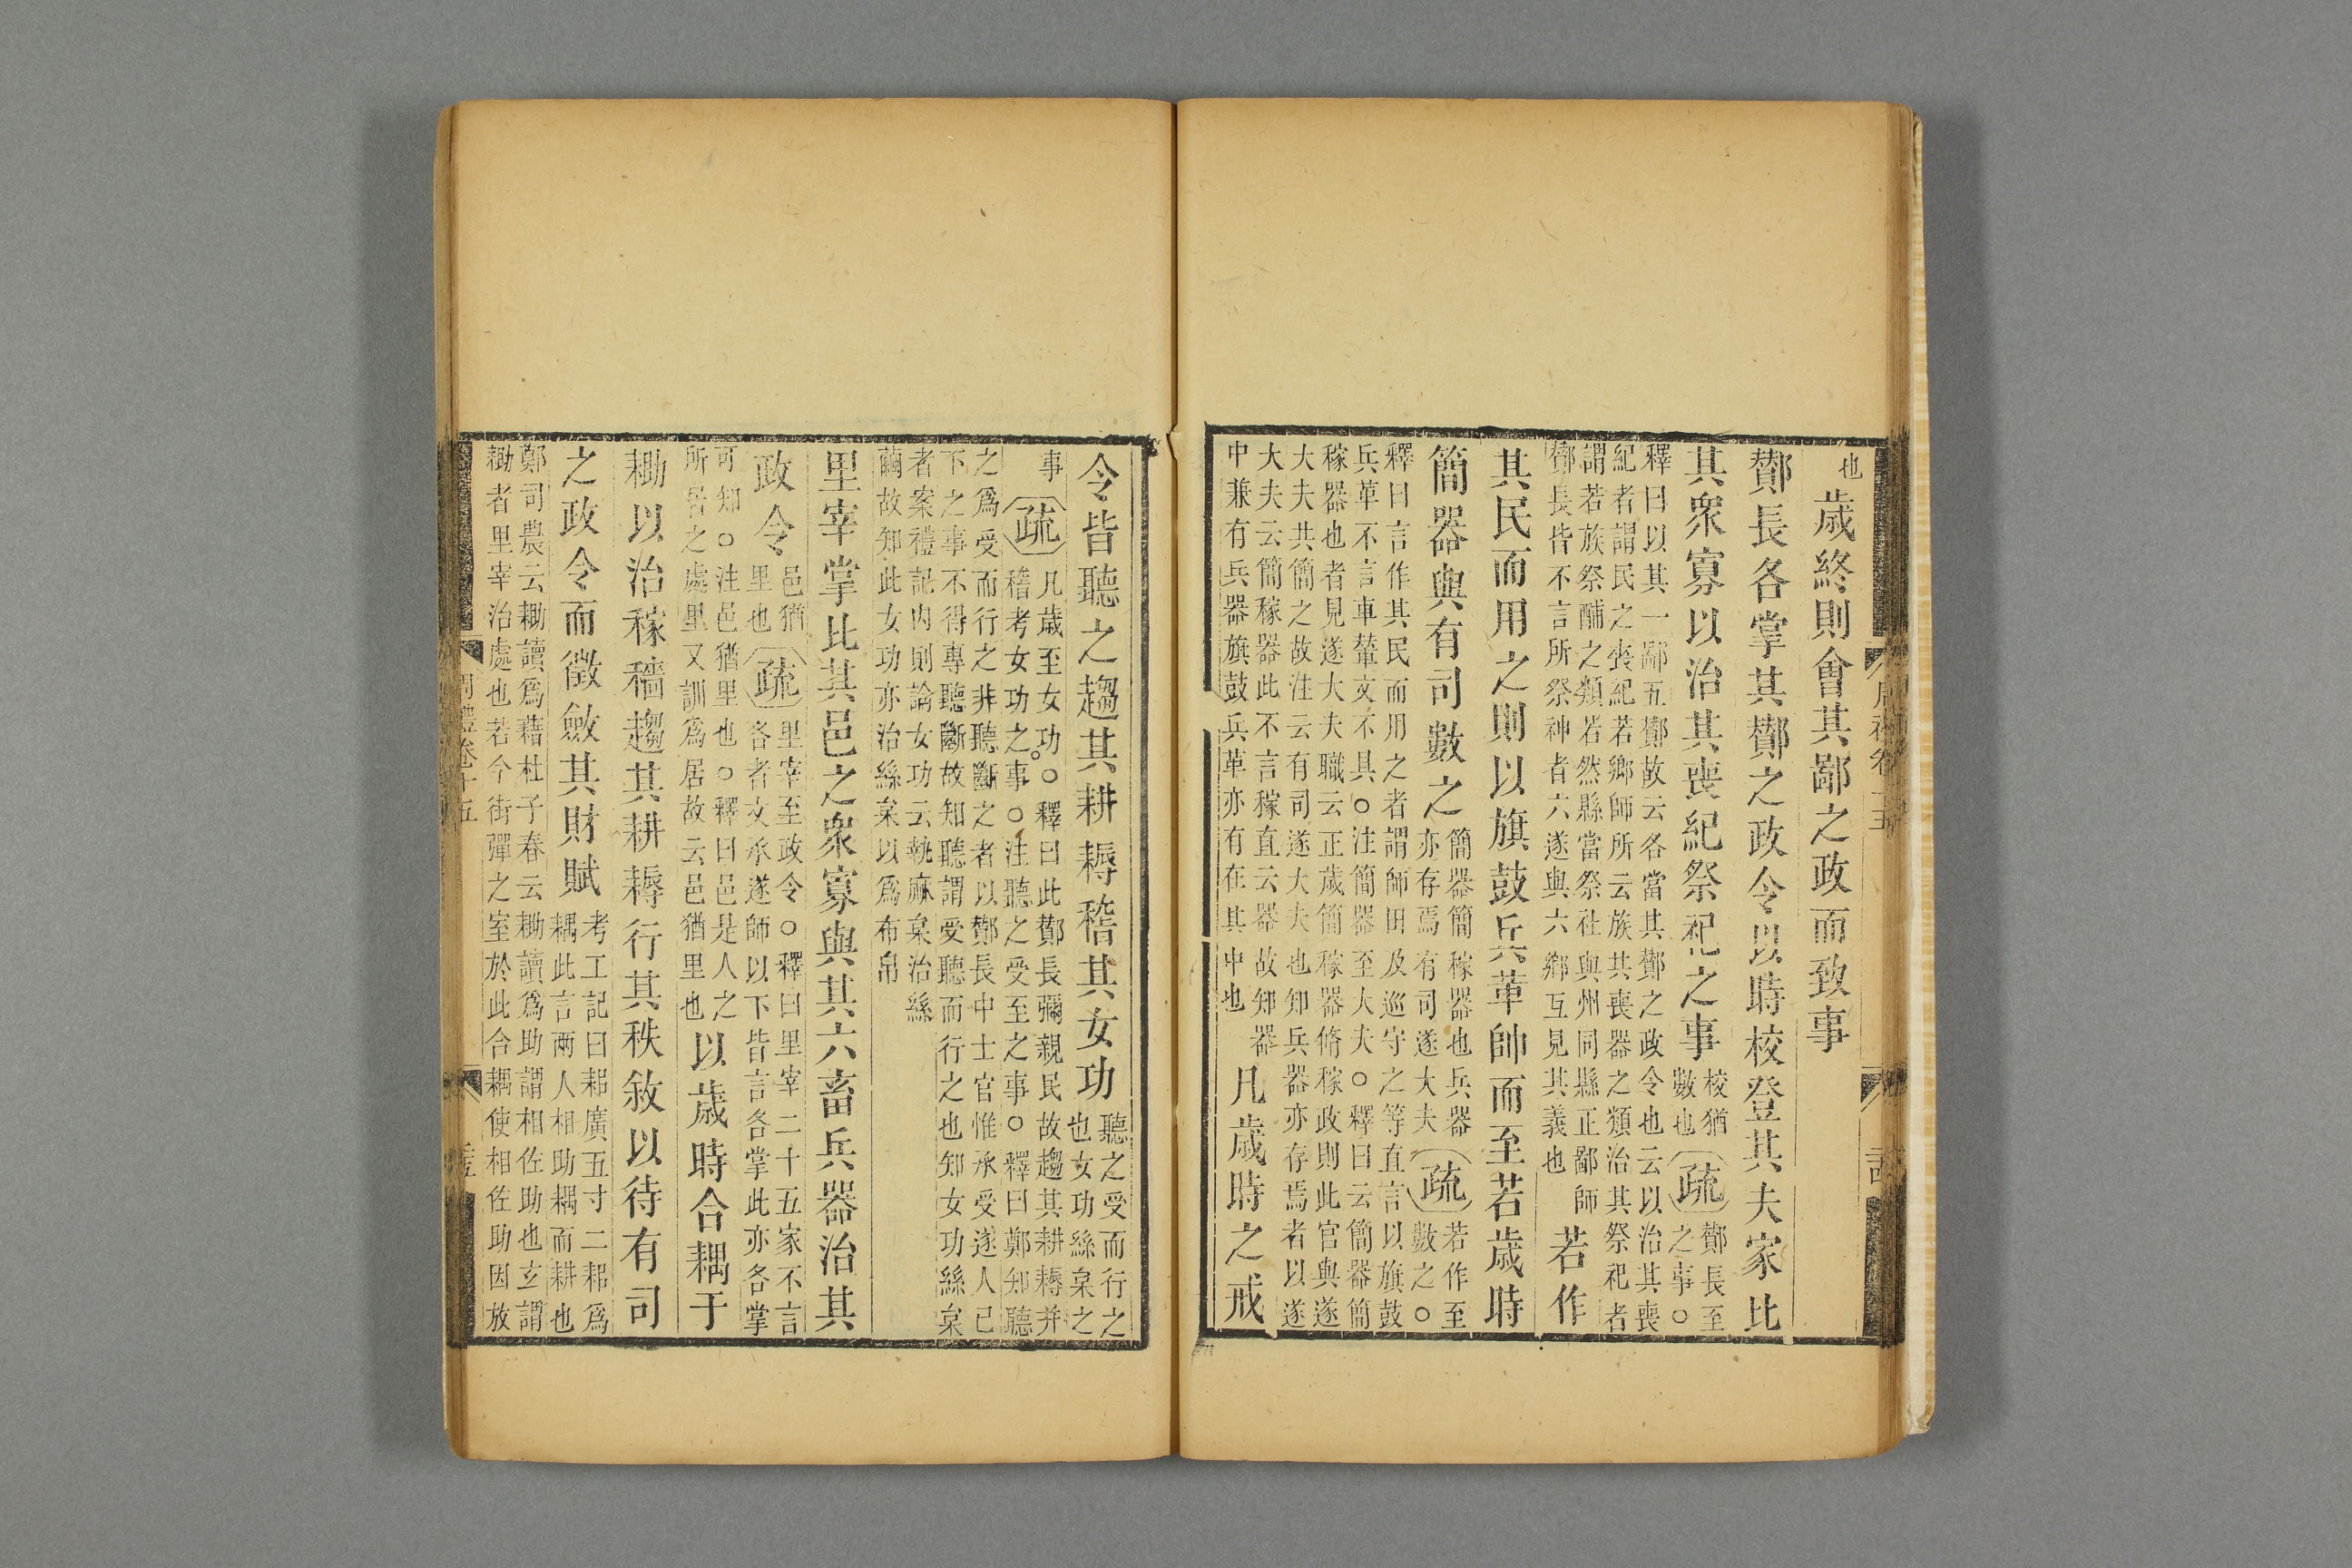 也
歲終則會其鄙之政而致事
酇長各掌其酇之政令以時校登其夫家比
其衆寡以治其喪紀祭祀之事
校猶
數也
疏
酇長至
之事○
釋曰以其一鄙五酇故云各當其酇之政令也云以治其喪
紀者謂民之喪紀若鄉師所云族共喪器之類治其祭祀者
謂若族祭酺之類若然縣當祭社與州同縣正鄙師
酇長皆不言所祭神者六遂與六鄉互見其義也
若作
其民而用之則以旗鼓兵革帥而至若歲時
簡器與有司數之
簡器簡稼器也兵器
亦存焉有司遂大夫
疏
若作至
數之○
釋曰言作其民而用之者謂師田及巡守之等直言以旗鼓
兵革不言車輦文不具○注簡器至大夫○釋曰云簡器簡
稼器也者見遂大夫職云正歲簡稼器脩稼政則此官與遂
大夫共簡之故注云有司遂大夫也知兵器亦存焉者以遂
大夫云簡稼器此不言稼直云器故知器
中兼有兵器旗鼓兵革亦有在其中也
凡歲時之戒
令皆聽之趨其耕耨稽其女功
聽之受而行之
也女功絲枲之
事
疏
凡歲至女功○釋曰此酇長彌親民故趨其耕耨并
稽考女功之事○注聽之受至之事○釋曰鄭知聽
之爲受而行之非聽斷之者以酇長中士官惟承受遂人已
下之事不得專聽斷故知聽謂受聽而行之也知女功絲枲
者案禮記內則論女功云執麻枲治絲
繭故知此女功亦治絲枲以爲布帛
里宰掌比其邑之衆寡與其六畜兵器治其
政令
邑猶
里也
疏
里宰至政令○釋曰里宰二十五家不言
各者文承遂師以下皆言各掌此亦各掌
可知○注邑猶里也○釋曰邑是人之
所居之處里又訓爲居故云邑猶里也
以歲時合耦于
耡以治稼穡趨其耕耨行其秩敘以待有司
之政令而徵斂其財賦
考工記曰耜廣五寸二耜爲
耦此言兩人相助耦而耕也
鄭司農云耡讀爲藉杜子春云耡讀爲助謂相佐助也玄謂
耡者里宰治處也若今街彈之室於此合耦使相佐助因放
周禮卷十五